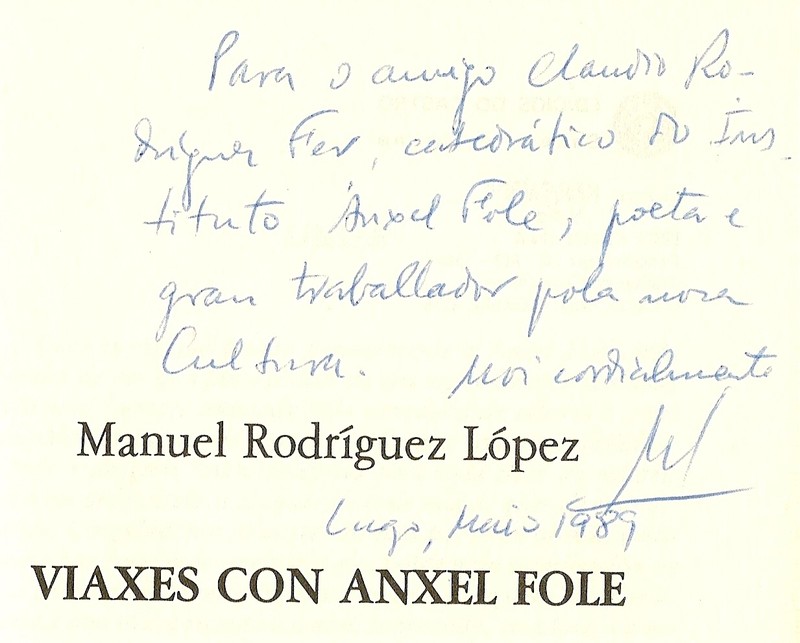 Para o amigo Claudio Ro-
dríguez Fer, catedrático do Ins-
tituto Ánxel Fole, poeta e
gran traballador pola nosa
Cultura. Moi cordialmente
Manuel Rodríguez López
Lugo, Maio 1989
VIAXES CON ANXEL FOLE